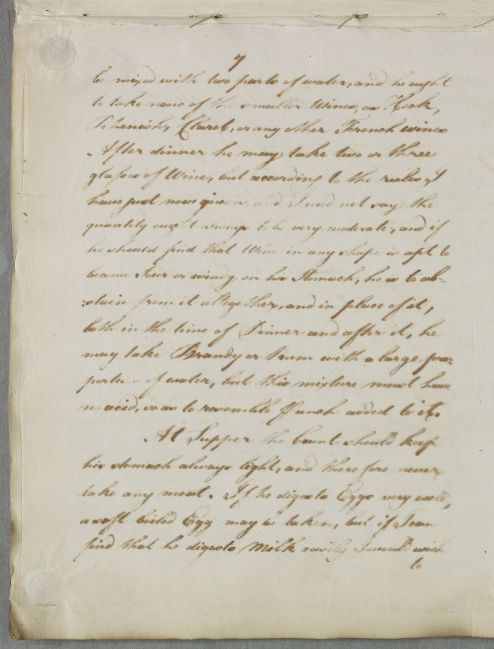 7
be mixed with two parts of water, and he ought
to take none of the smaller Wines, as Hock,
Rhenish, Claret, or any other French wines
After dinner he may take two or three
glasses of Wine, but according to the rules I
have just now given and I need not say the
quantity ought always to be very moderate, and if
he should find that Wine in any shape is apt to
become Sour or windy on his Stomach, he is to ab=
=stain from it altogether, and in place of it,
both in the time of Dinner and after it, he
may take Brandy or Rum with a large pro
portion of water, but this mixture must have
no acid, so as to resemble Punch added to it.
At Supper the Count should keep
his stomach always light, and therefore never
take any meat. If he digests Eggs very well,
a soft boiled Egg may be taken, but if I can
find that he digests Milk easily I would wish
to